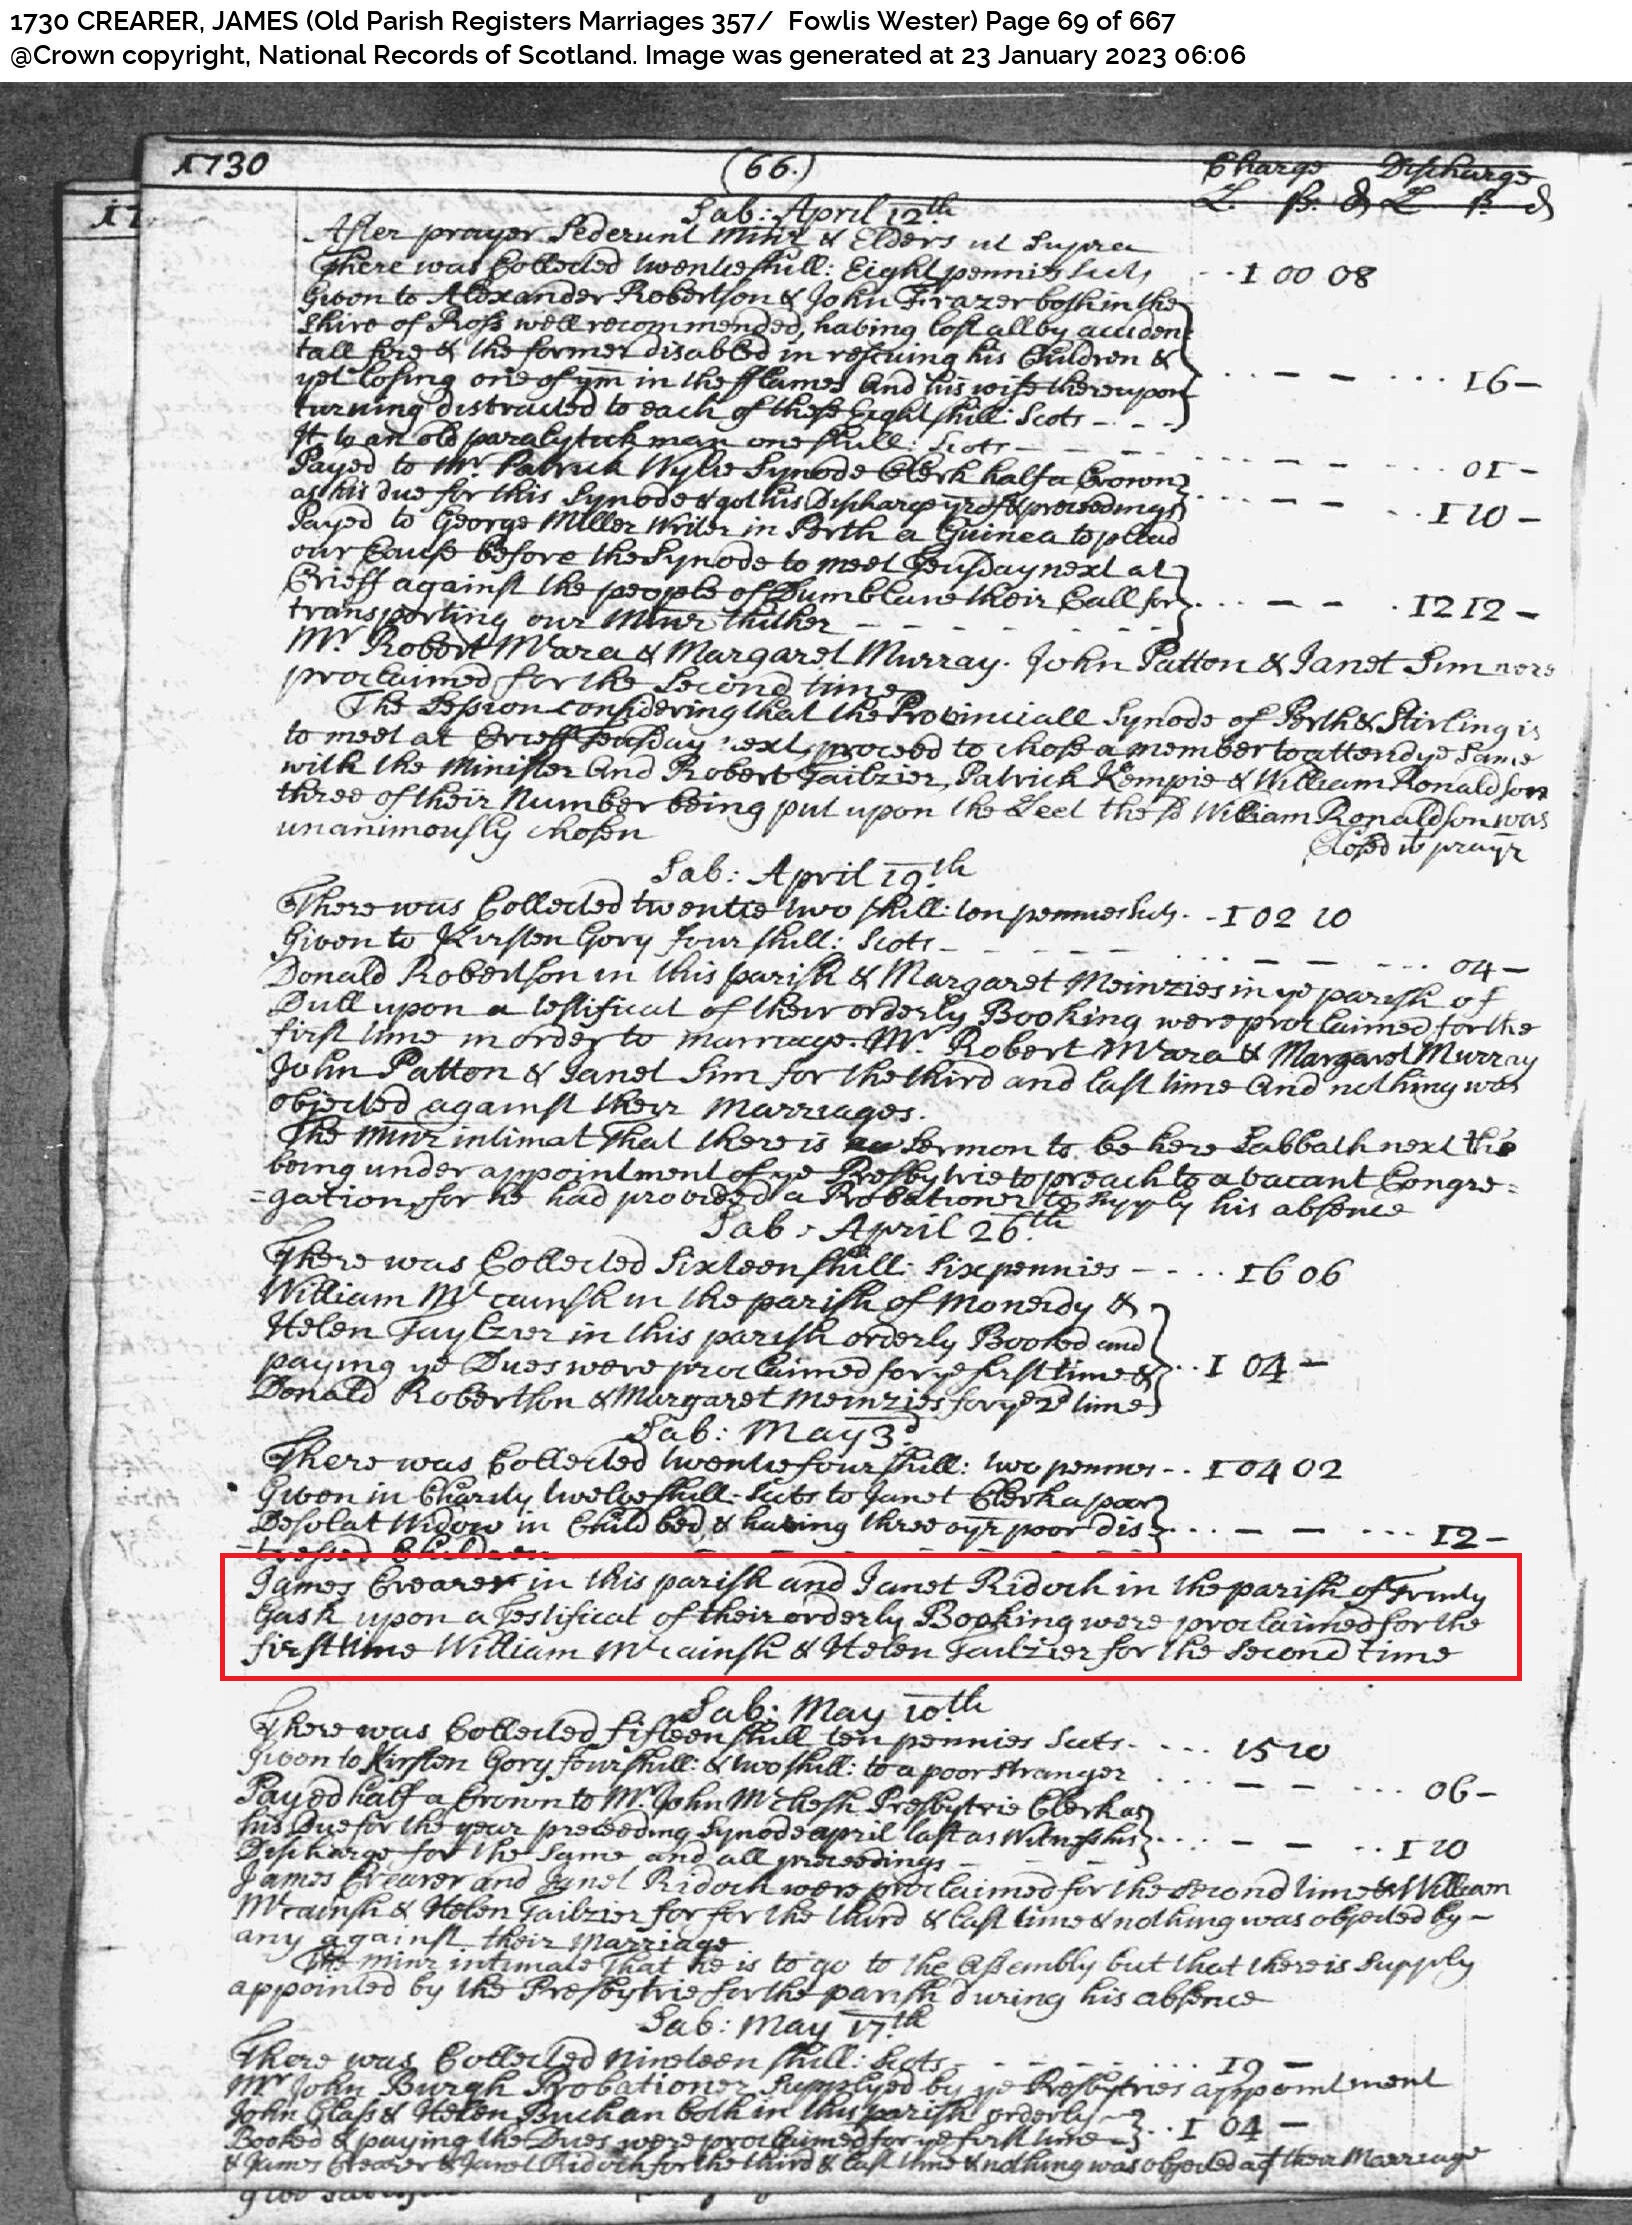 1730 CREARER, JAMES (Old Parish Registers Marriages 357/ Fowlis Wester) Page 69 of 667
@Crown copyright, National Records of Scotland. Image was generated at 23 January 2023 06:06
1730 (66.) Charge Discharge
L. ß: d L ß: d
17
Sab: April 12th
After prayer Sederunt Minr & Elders ut Supra
There was Collected twentie shill: Eight pennies Scots - - 1 00 08
Given to Alexander Robertson & John Frazer both in the
Shire of Ross well recommended, having lost all by acciden
tall fire & the former disabled in rescuing his Children &
yet losing one of ym in the fflames And his wife thereupon - - - 16 -
turning distracted to each of these Eight shill: Scots - - -
It to an old paralytick man one shill: Scots - - - 01 -
Payed to Mr Patrick Wylie Synode Clerk half a Crown
as his due for this Synode & got his Discharge yrof & preceedings - - - 1 10 -
Payed to George Miller Writer in Perth a Guinea to plead
our Cause before the Synode to meet Teusday next at
Crieff against the people of Dumblane their Call for - - - 12 12 -
transporting our Minr thither - - - - -
Mr. Robert Mcara & Margaret Murray. John Patton & Janet Sim were
proclaimed for the Second time
The Session considering that the Provinciall Synode of Perth & Stirling is
to meet at Crieff Teusday next, proceed to chose a member to attend ye Same
with the Minister And Robert Tailzier, Patrick Kempie & William Ronaldson
three of their Number being put upon the Leet the sd William Ronaldson was
unanimously chosen
Closed wt prayr
Sab: April 19th
There was Collected twentie two shill: ten pennies Scots. - 1 02 10
Given to Kirsten Gory four shill: Scots - - - 04 -
Donald Robertson in this parish & Margaret Meinzies in ye parish of
Dull upon a testificat of their orderly Booking were proclaimed for the
first time in order to marriage. Mr. Robert Mcara & Margaret Murray
John Patton & Janet Sim for the third and last time And nothing was
objected against their Marriages.
The Minr intimat That there is Sermon to be here Sabbath next tho
being under appointment of ye Presbytrie to preach to a vacant Congre=
=gation, for he had provided a Probationer to Supply his absence
Sab: April 26th
There was Collected Sixteen shill: Six pennies - - - 16 06
William Mccainsh in the parish of Monerdy &
Helen Taylzier in this parish orderly Booked and
paying ye Dues were proclaimed for ye first time & - - 1 04 -
Donald Robertson & Margaret Meinzies for ye 2d time
Sab: May 3d
There was Collected twentie four shill: two pennies - - 1 04 02
Given in Charity twelve shill: Scots to Janet Clerk a poor
Desolat Widow in Child bed & having three oyr poor dis - - - 12 -
tressed Children - - - - -
James Crearer in this parish and Janet Ridoch in the parish of Trinity
Gask upon a Testificat of their orderly Booking were proclaimed for the
first time William Mccainsh & Helen Tailzier for the Second time
Sab: May 10th
There was Collected fifteen shill ten pennies Scots. - - - 15 10
Given to Kirsten Gory four shill: & two shill: to a poor Stranger - - - 06 -
Payed half a Crown to Mr John Mcclesh Presbytrie Clerk as
his Due for the year preceeding Synode april last as Witness his - - - 1 10
Discharge for the Same and all preceedings -
James Crearer and Janet Ridoch were proclaimed for the second time & William
Mccainsh & Helen Tailzier for for the third & last time & nothing was objected by -
any against their Marriage
The Minr intimate That he is to go to the Assembly but that there is Supply
appointed by the Presbytrie for the parish during his absence
Sab: May 17th
There was Collected Nineteen shill: Scots. - - - 19 -
Mr John Burgh Probationer Supplyed by ye Presbytries appointment
John Glass & Helen Buchan both in this parish orderly
Booked & paying the Dues were proclaimed for ye first time - - 1 04 -
& James Crearer & Janet Ridoch for the third & last time & nothing was objected agt their Marriage